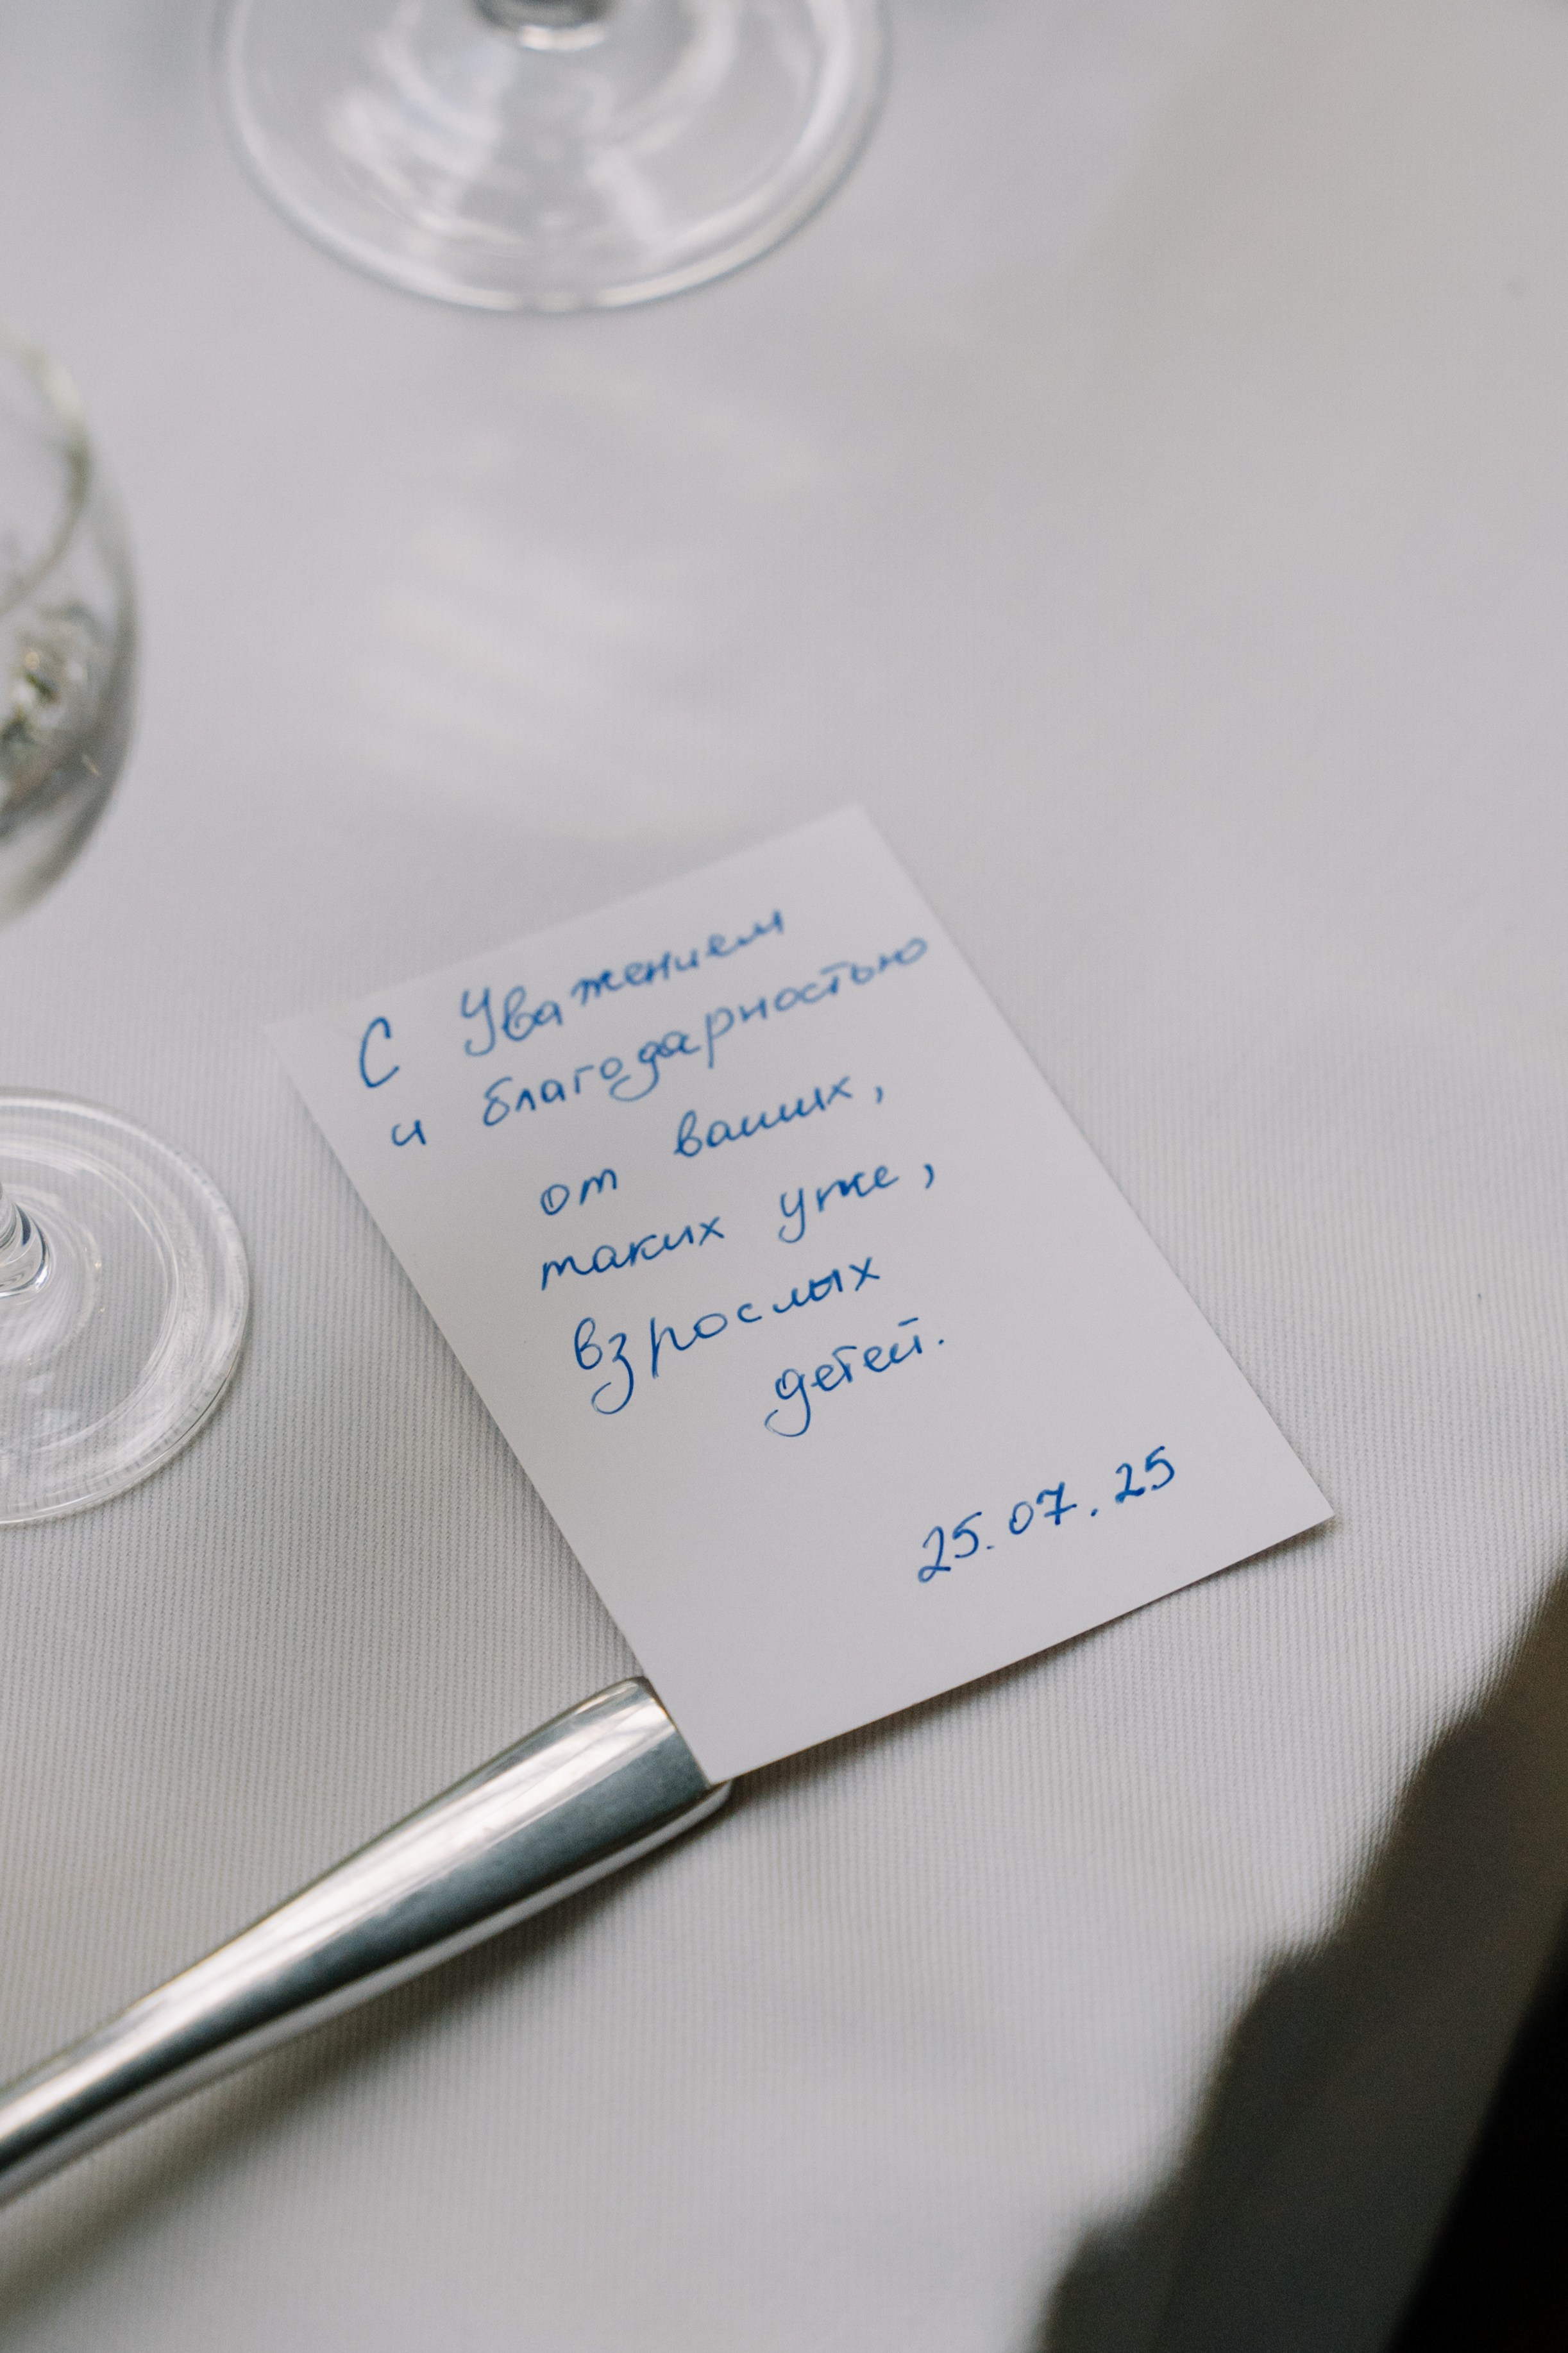 С Уважением
и благодарностью
от ваших,
таких уже,
взрослых
детей.
25.07.25